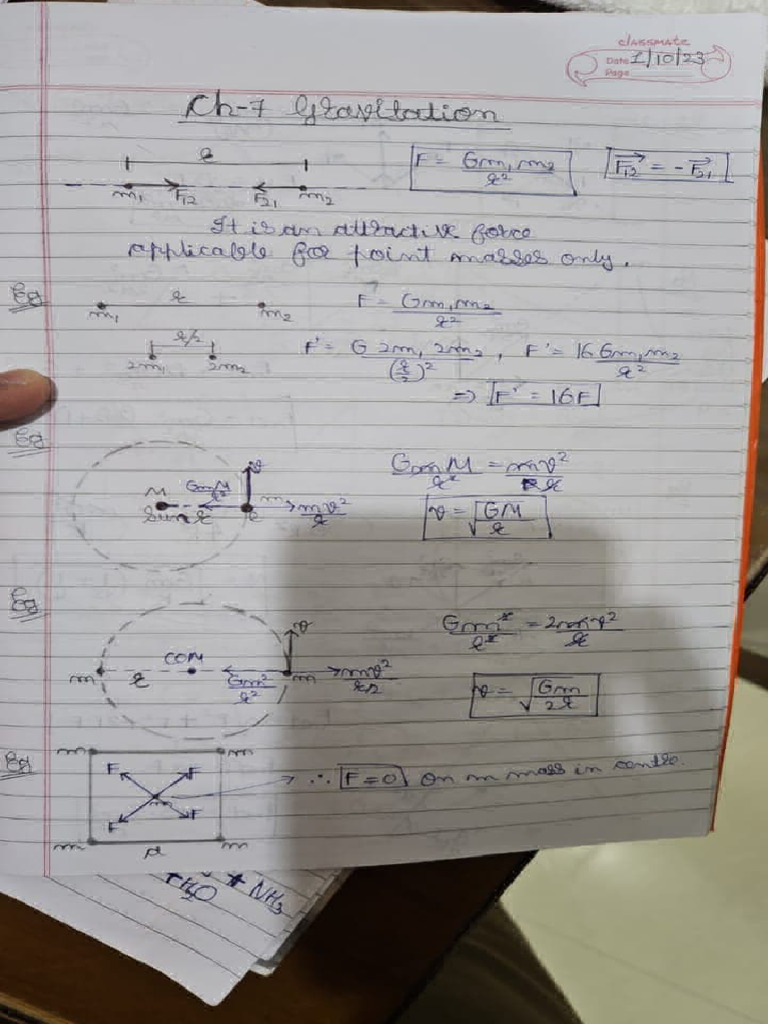 classmate
Date 1/10/23
Page
Ch-7 Gravitation
r
F = Gm₁m₂/r²
F₁₂ = -F₂₁
m₁ F₁₂ F₂₁ m₂
It is an attractive force
applicable for point masses only.
Eg
r
m₁ m₂
F = Gm₁m₂/r²
r/2
2m₁ 2m₂
F' = G 2m₁ 2m₂/(r/2)² , F' = 16 Gm₁m₂/r²
=> F' = 16F
Eg
v
M GmM/r² m mv²/r
Sun r e
GmM/r² = mv²/r
v = √GM/r
Eg
v
COM
m r Gm²/r² m mv²/r/2
Gm²/r² = 2mv²/r
v = √Gm/2r
Eg
m m
F F
m
F F
m m
∴ F=0 on m mass in centre.
H₂O + NH₃